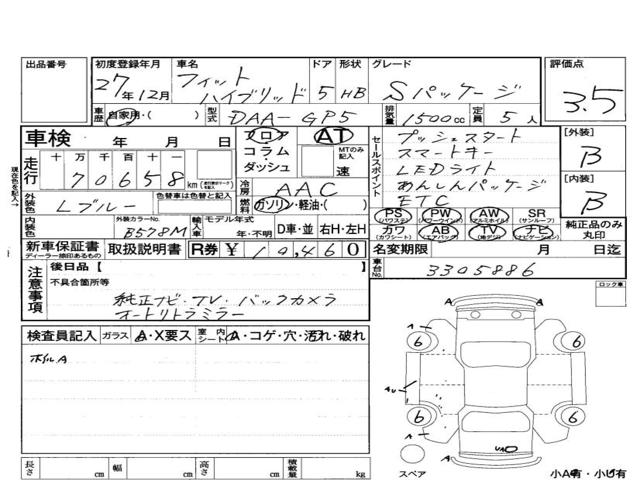 出品番号 初度登録年月 車名 ドア 形状 グレード 評価点
27年12月 フィット ハイブリッド 5 HB Sパッケージ 3.5
車歴 自家用・( ) 型式 DAA-GP5 排気量 1500cc 定員 5人
車検 年 月 日 フロア コラム・ダッシュ AT MTのみ記入 速
セールスポイント
プッシュスタート
スマートキー
LEDライト
あんしんパッケージ
ETC
[外装] B
[内装] B
走行 十 万 千 百 十 一
70658 km
現在色を記入
外装色 色替車は色替と記入
Lブルー
冷房 AAC
燃料 ガソリン・軽油・( )
PS (パワステ) PW (パワーウインド) AW (アルミホイル) SR (サンルーフ)
カワ (カワシート) AB (エアバック) TV (地デジ) ナビ (ナビゲーション)
純正品のみ丸印
内装色 外装カラーNo. B578M 輸入車 モデル年式 年・不明 D車・並 右H・左H
新車保証書 ディーラー捺印あるもの 取扱説明書 R券 ¥ 10,460
名変期限 月 日迄
車台No. 3305886
注意事項
後日品【 】
不具合箇所等
純正ナビ・TV・バックカメラ
オートリトラミラー
ロック車
検査員記入 ガラス A・X要ス 室内シート A・コゲ・穴・汚れ・破れ
ホイルA
A A
A A
6 6
6 6
AU
A
スペア 小A有・小U有
長さ cm 幅 cm 高さ cm 積載量 kg